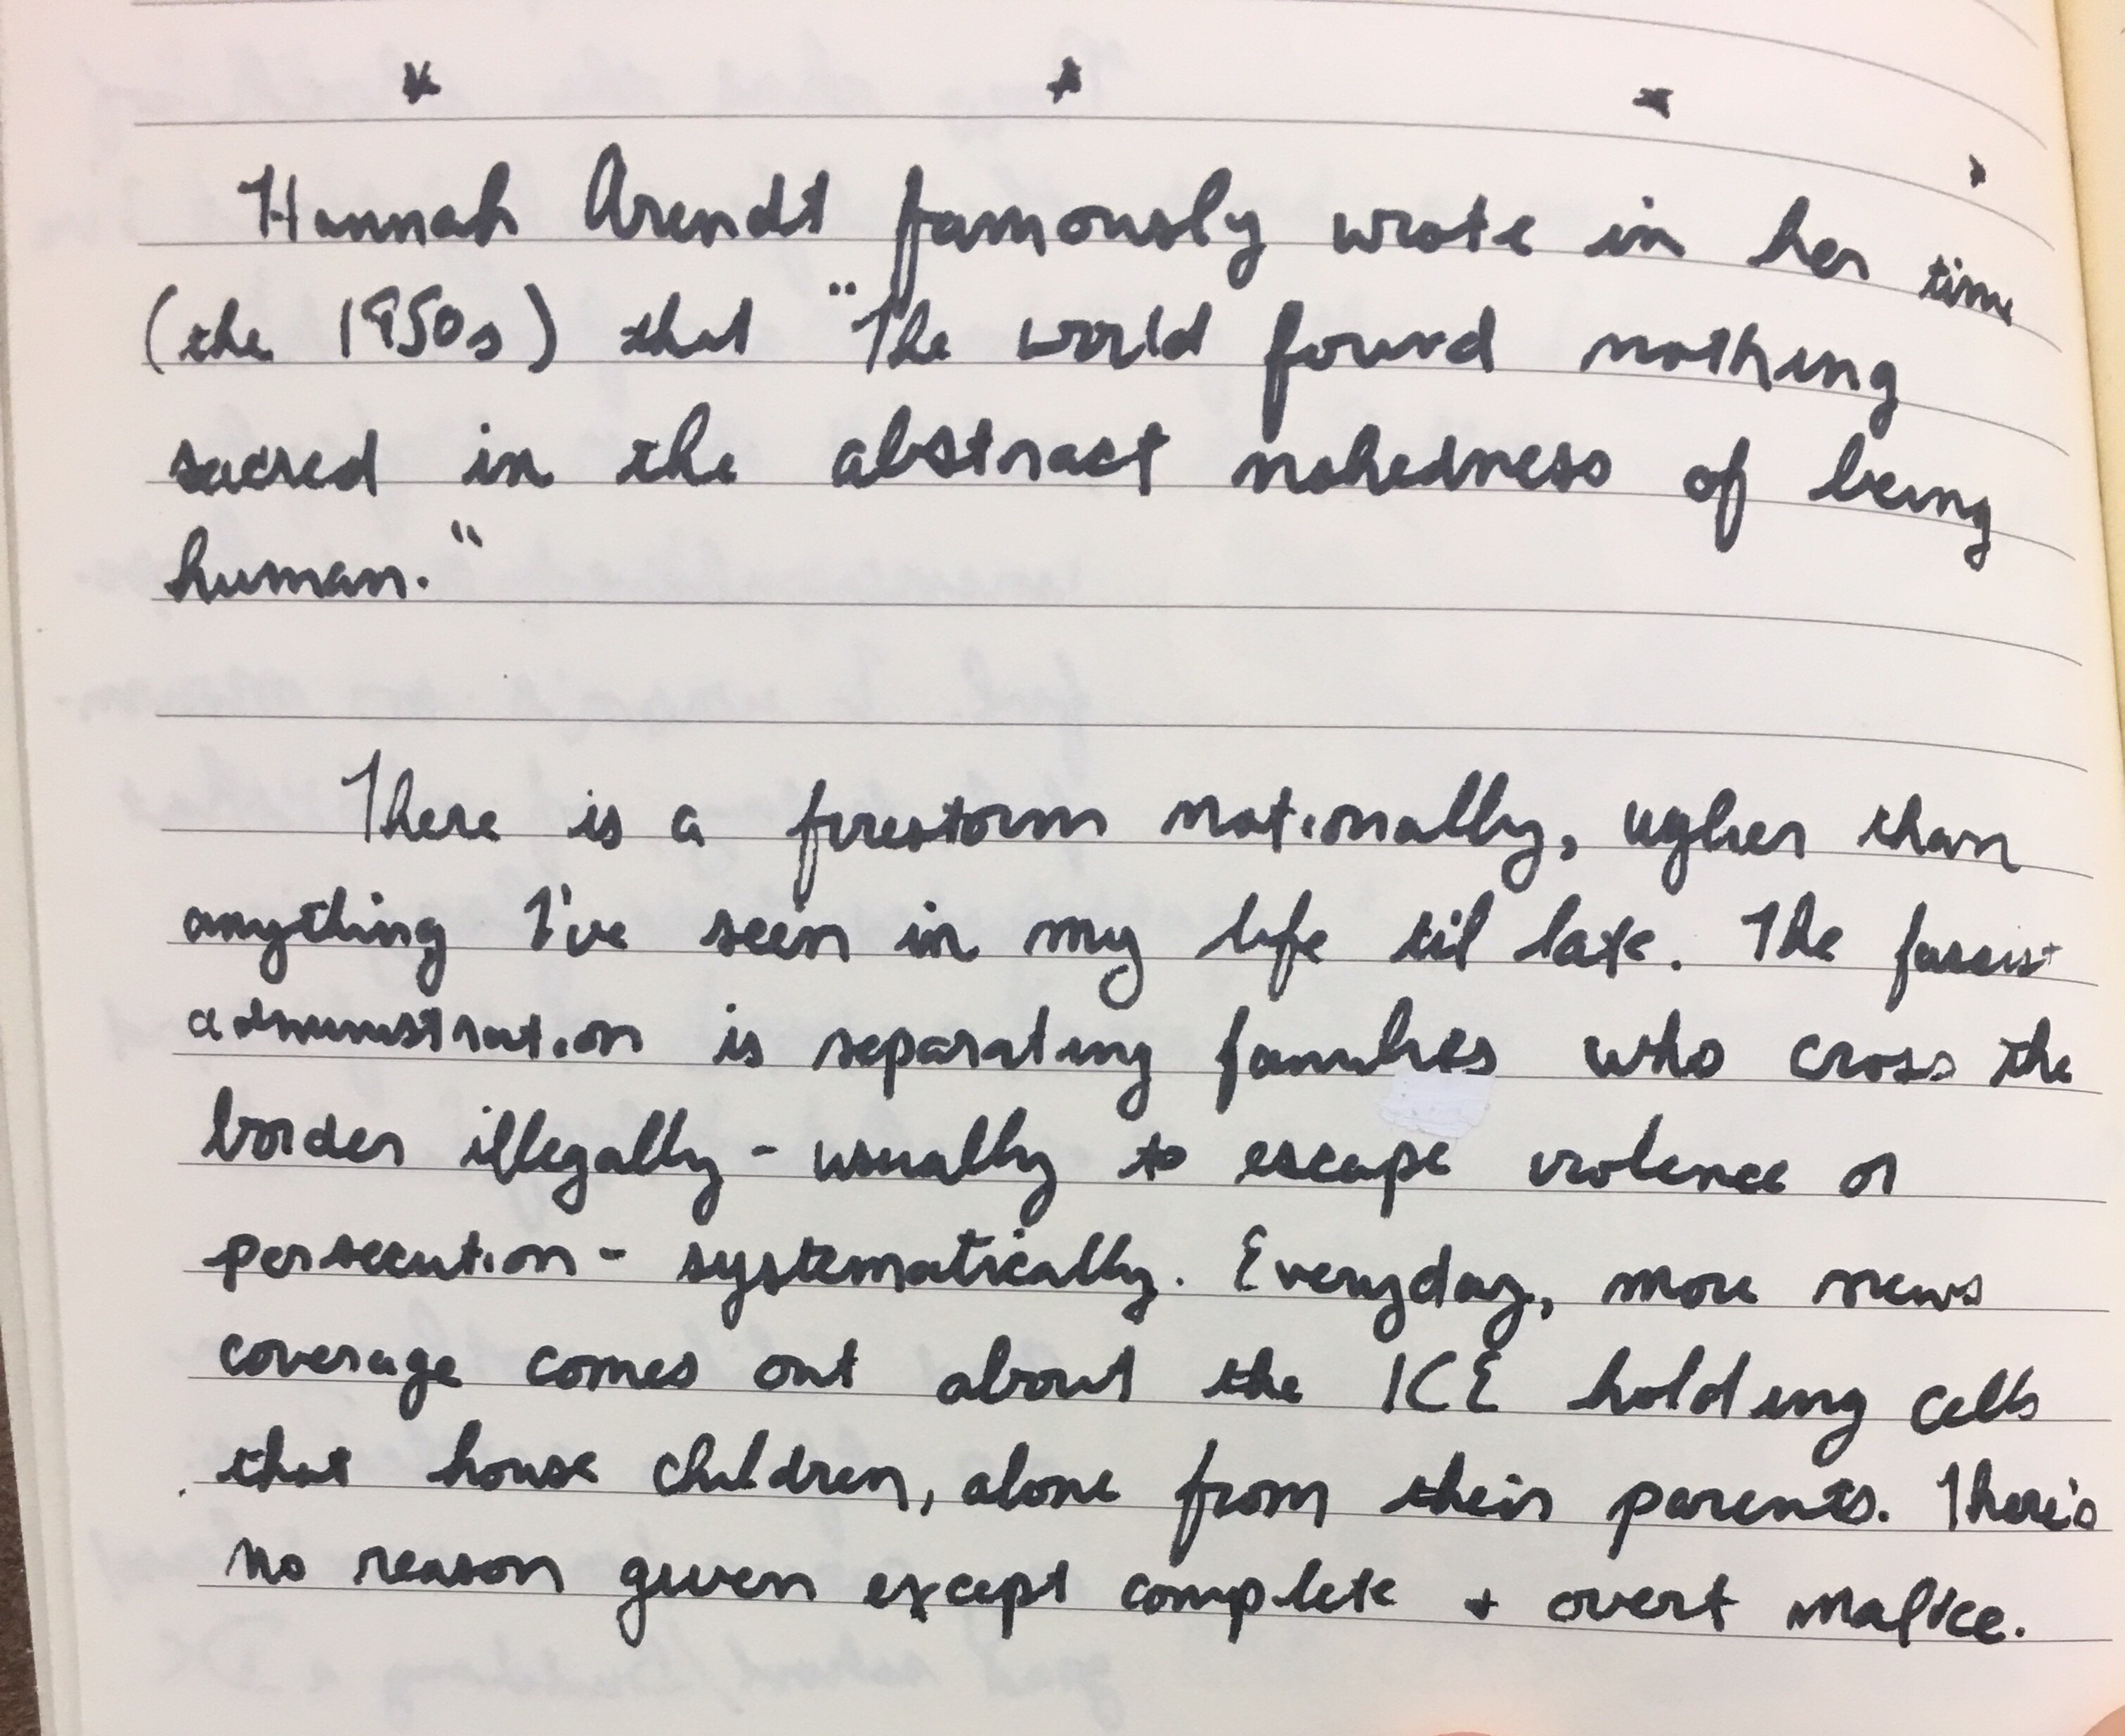 * * * *
Hannah Arendt famously wrote in her time
(the 1950s) that "The world found nothing
sacred in the abstract nakedness of being
human."
There is a firestorm nationally, uglier than
anything I've seen in my life til late. The fascist
administration is separating families who cross the
border illegally - usually to escape violence or
persecution - systematically. Everyday, more news
coverage comes out about the ICE holding cells
that house children, alone from their parents. There's
no reason given except complete + overt malice.